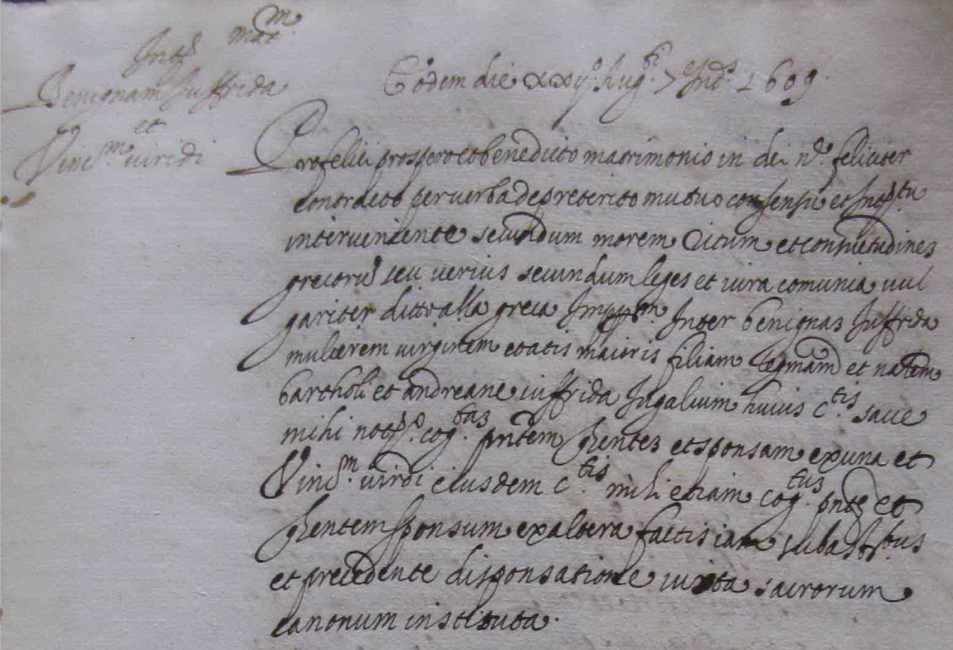 mat.m
Inter
Benignam Juffrida
et
Vinc.m viridi
Eodem die xxij.o Aug.ti 7 Ind.s 1609
Pro felici prospero et benedicto matrimonio in dei n.e feliciter
contracto per verba de preterito mutuo consensu et
interveniente secundum morem ritum et consuetudines
grecorum seu verius secundum leges et iura comunia vul
gariter ditto alla greca Inter benignam Juffrida
mulierem virginem etatis maioris filiam legmam et natem
bartholi et andreane iuffrida Jugalium huius c.tis sacce
mihi not.o cog.tas pntem et sponsam ex una et
Vinc.m virdi eiusdem c.tis mihi etiam cog.tus pnte et
sponsum ex altera factis iam
et precedente disponsatione iuxta sacrorum
canonum instituta.